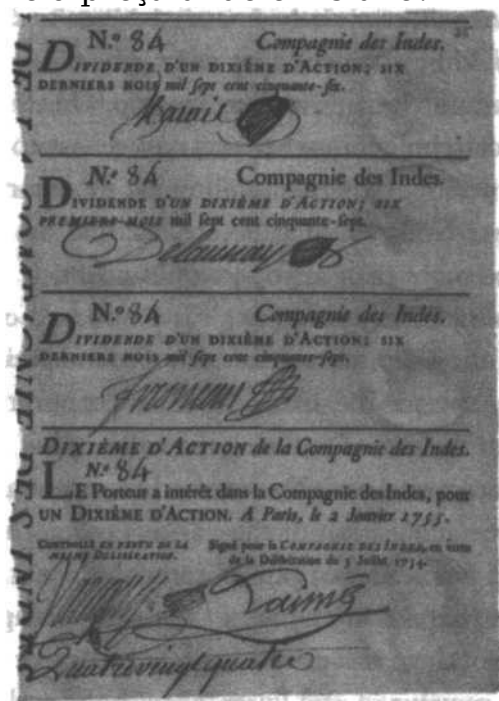 N.º 84 Compagnie des Indes.
DIVIDENDE D'UN DIXIÈME D'ACTION; SIX
DERNIERS MOIS mil sept cent cinquante-six.
N.º 84 Compagnie des Indes.
DIVIDENDE D'UN DIXIÈME D'ACTION; SIX
PREMIERS MOIS mil sept cent cinquante-sept.
Delaunay
N.º 84 Compagnie des Indes.
DIVIDENDE D'UN DIXIÈME D'ACTION; SIX
DERNIERS MOIS mil sept cent cinquante-sept.
DIXIÈME D'ACTION de la Compagnie des Indes.
N.º 84
LE Porteur a intérêt dans la Compagnie des Indes, pour
UN DIXIÈME D'ACTION. A Paris, le 2 Janvier 1755.
CONTROLLÉ EN VERTU DE LA Signé pour la COMPAGNIE DES INDES, en vertu
MESME DÉLIBÉRATION. de la Délibération du 5 Juillet 1754.
Quatrevingt quatre
DE LA COMPAGNIE DES INDES